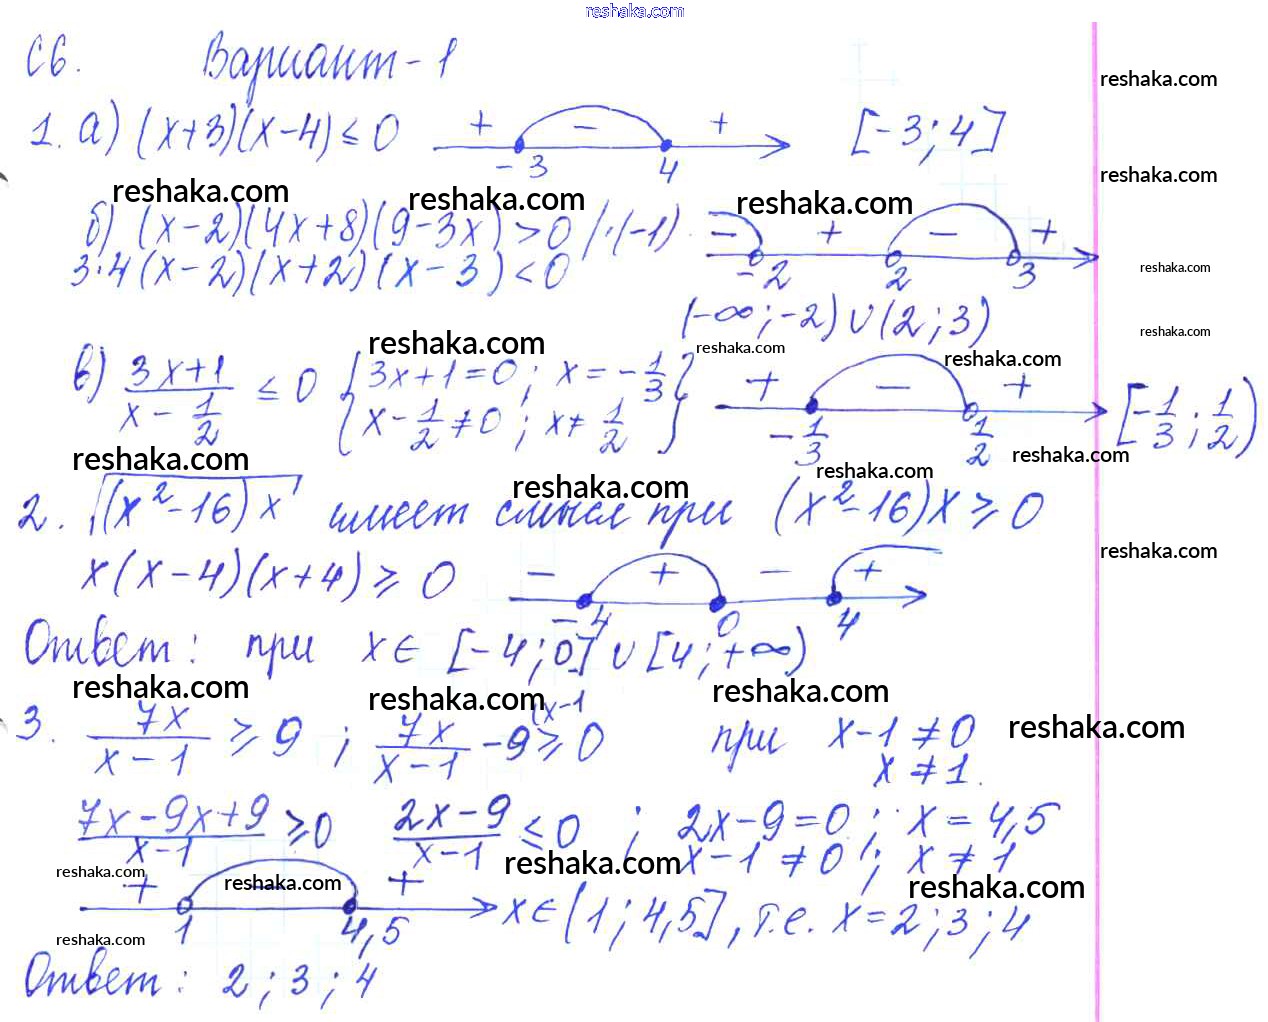 reshaka.com
С6. Вариант-1
reshaka.com
1. а) (x+3)(x-4) ≤ 0 + - + -3 4 [-3; 4]
reshaka.com reshaka.com reshaka.com reshaka.com
б) (x-2)(4x+8)(9-3x) > 0 /·(-1) - + - + -2 2 3
3·4(x-2)(x+2)(x-3) < 0
reshaka.com
(-∞; -2) ∪ (2; 3)
reshaka.com
reshaka.com reshaka.com reshaka.com
в) (3x+1)/(x - 1/2) ≤ 0 { 3x+1=0; x = -1/3
x - 1/2 ≠ 0; x ≠ 1/2 } + - + -1/3 1/2 [-1/3; 1/2)
reshaka.com reshaka.com reshaka.com reshaka.com
2. √((x²-16)x) имеет смысл при (x²-16)x ≥ 0
reshaka.com
x(x-4)(x+4) ≥ 0 - + - + -4 0 4
Ответ: при x ∈ [-4; 0] ∪ [4; +∞)
reshaka.com reshaka.com reshaka.com reshaka.com
3. 7x/(x-1) ≥ 9; 7x/(x-1) - 9 (x-1 ≥ 0 при x-1 ≠ 0
x ≠ 1.
(7x-9x+9)/(x-1) ≥ 0 (2x-9)/(x-1) ≤ 0; 2x-9=0; x = 4,5
x-1 ≠ 0; x ≠ 1
reshaka.com reshaka.com reshaka.com reshaka.com
+ - + 1 4,5 x ∈ (1; 4,5], т.е. x = 2; 3; 4
reshaka.com
Ответ: 2; 3; 4